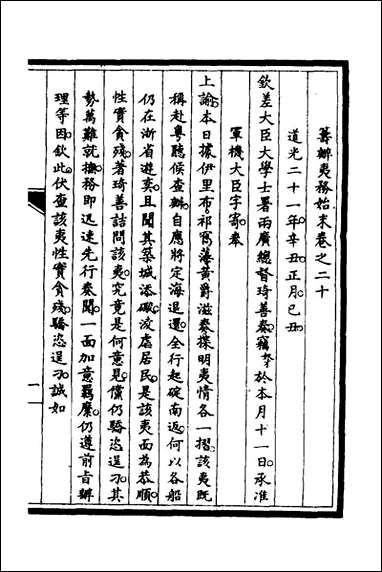 籌辦夷務始末卷之二十
道光二十一年辛丑正月己丑
欽差大臣大學士署兩廣總督琦善奏竊奴才於本月十一日承准
軍機大臣字寄奉
上諭本日據伊里布祁寯藻黃爵滋奏探明夷情各一摺該夷既
稱赴粵聽候查辦自應將定海退還全行起碇南返何以各船
仍在浙省遊奕且聞其築城添礮淩虐居民是該夷面為恭順
性實貪殘著琦善詰問該夷究竟是何意見儻仍驕恣逞刁其
勢萬難就撫務即迅速先行奏聞一面加意羈縻仍遵前旨辦
理等因欽此伏查該夷性實貪殘驕恣逞刁誠如
一